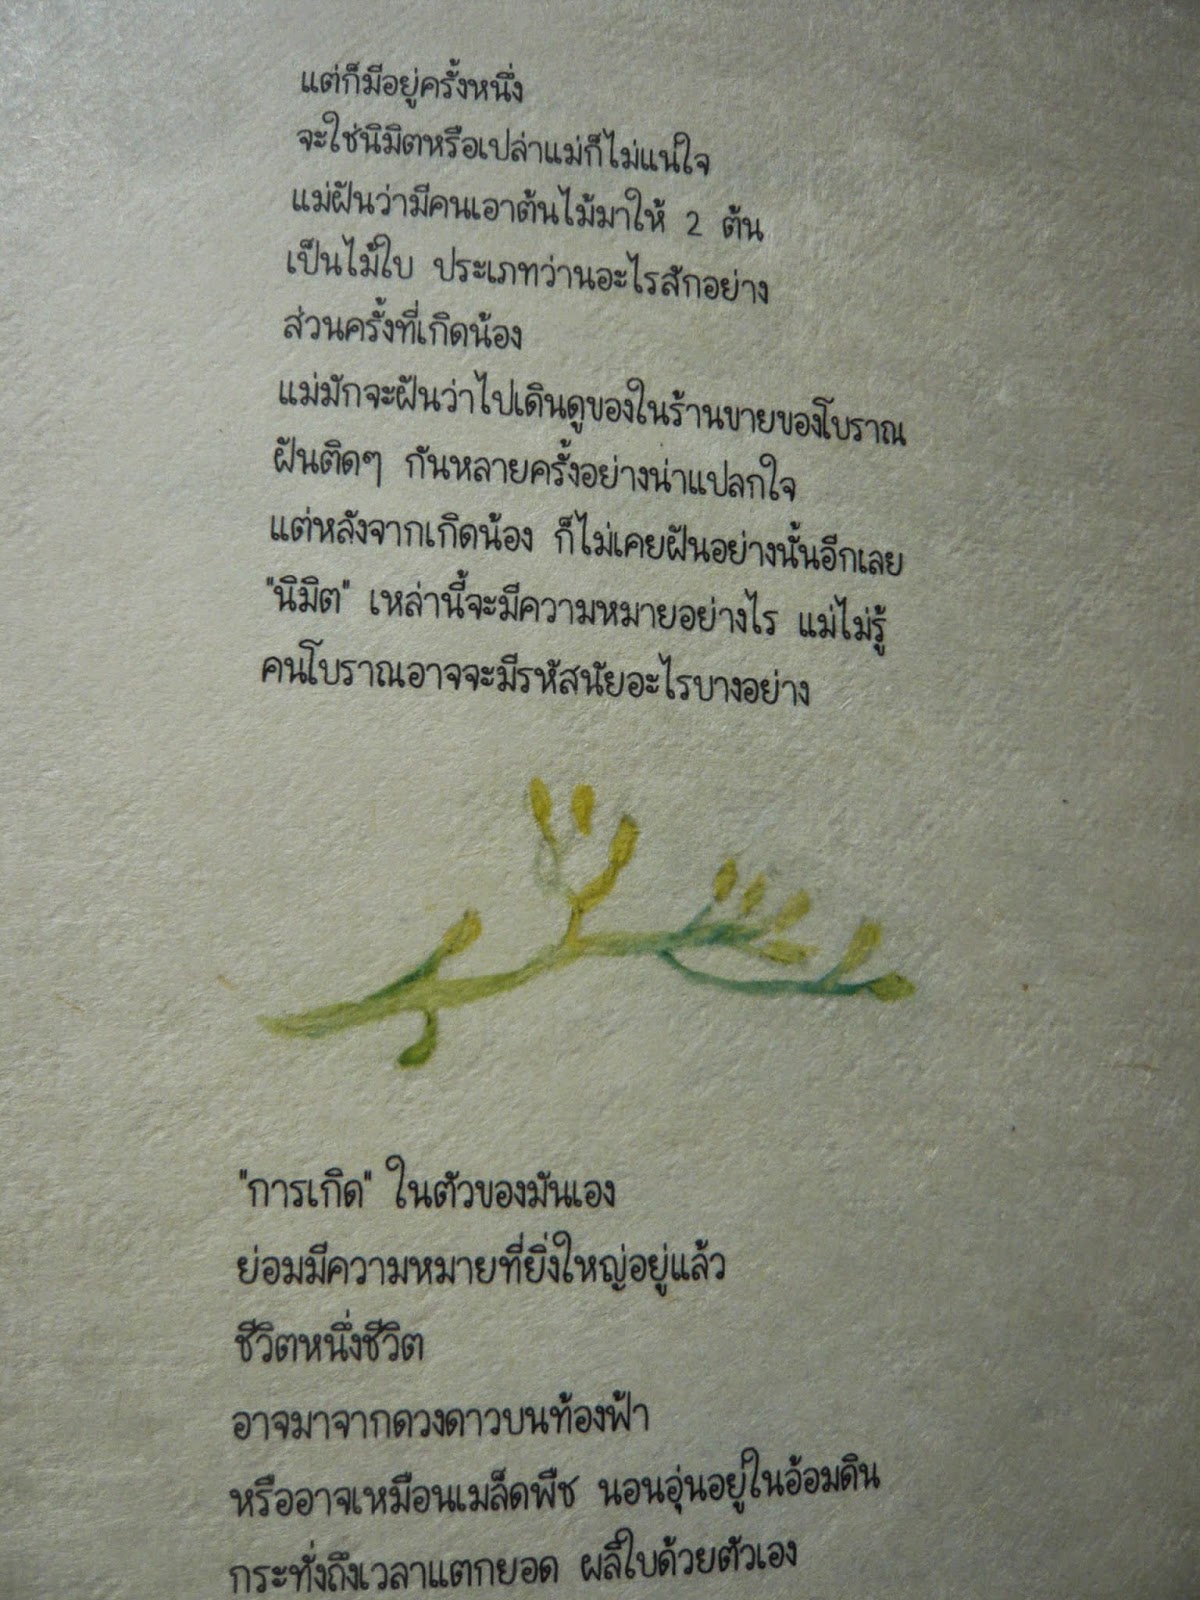 แต่ก็มีอยู่ครั้งหนึ่ง
จะใช่นิมิตหรือเปล่าแม่ก็ไม่แน่ใจ
แม่ฝันว่ามีคนเอาต้นไม้มาให้ 2 ต้น
เป็นไม้ใบ ประเภทว่านอะไรสักอย่าง
ส่วนครั้งที่เกิดน้อง
แม่มักจะฝันว่าไปเดินดูของในร้านขายของโบราณ
ฝันติดๆ กันหลายครั้งอย่างน่าแปลกใจ
แต่หลังจากเกิดน้อง ก็ไม่เคยฝันอย่างนั้นอีกเลย
"นิมิต" เหล่านี้จะมีความหมายอย่างไร แม่ไม่รู้
คนโบราณอาจจะมีรหัสนัยอะไรบางอย่าง
"การเกิด" ในตัวของมันเอง
ย่อมมีความหมายที่ยิ่งใหญ่อยู่แล้ว
ชีวิตหนึ่งชีวิต
อาจมาจากดวงดาวบนท้องฟ้า
หรืออาจเหมือนเมล็ดพืช นอนอุ่นอยู่ในอ้อมดิน
กระทั่งถึงเวลาแตกยอด ผลิใบด้วยตัวเอง